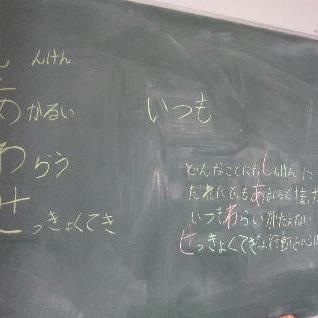 しんけん
あかるい
わらう
せっきょくてき
いつも
どんなことにもしんけんに
だれにでもあかるく接
いつもわらいがたえない
せっきょくてきな行動